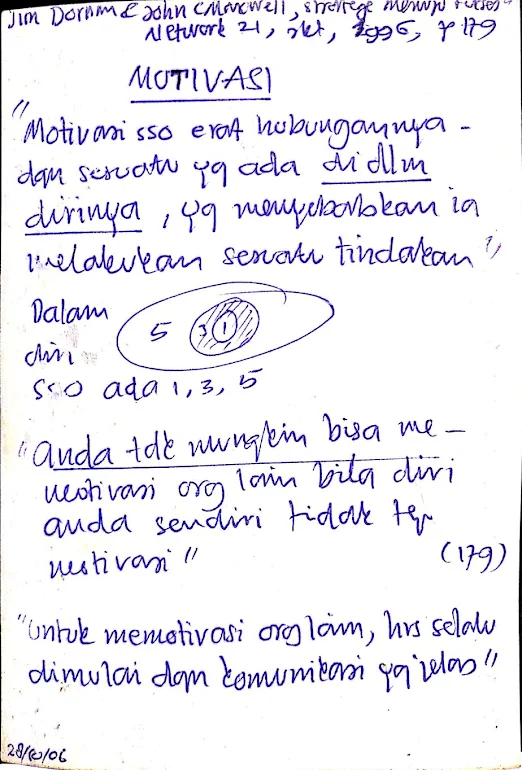 Jim Dornan & John C Maxwell, strategi menuju sukses
Network 21, okt, 1996, p 179
MOTIVASI
"Motivasi sso erat hubungannya -
dgn sesuatu yg ada di dlm
dirinya, yg menyebabkan ia
melakukan sesuatu tindakan"
Dalam
diri
5 3 1
sso ada 1, 3, 5
"anda tdk mungkin bisa me-
motivasi org lain bila diri
anda sendiri tidak ter
motivasi"
(179)
"untuk memotivasi org lain, hrs selalu
dimulai dgn komunikasi yg jelas"
28/10/06